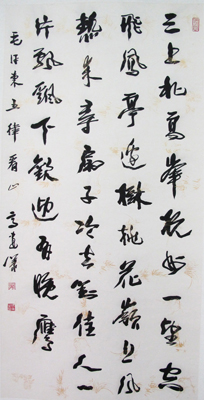 三上北高峰杭州一望空
飞凤亭边树桃花岭上风
热来寻扇子冷去对佳人一
片飘飘下欢迎有晚鹰
毛泽东五律看山